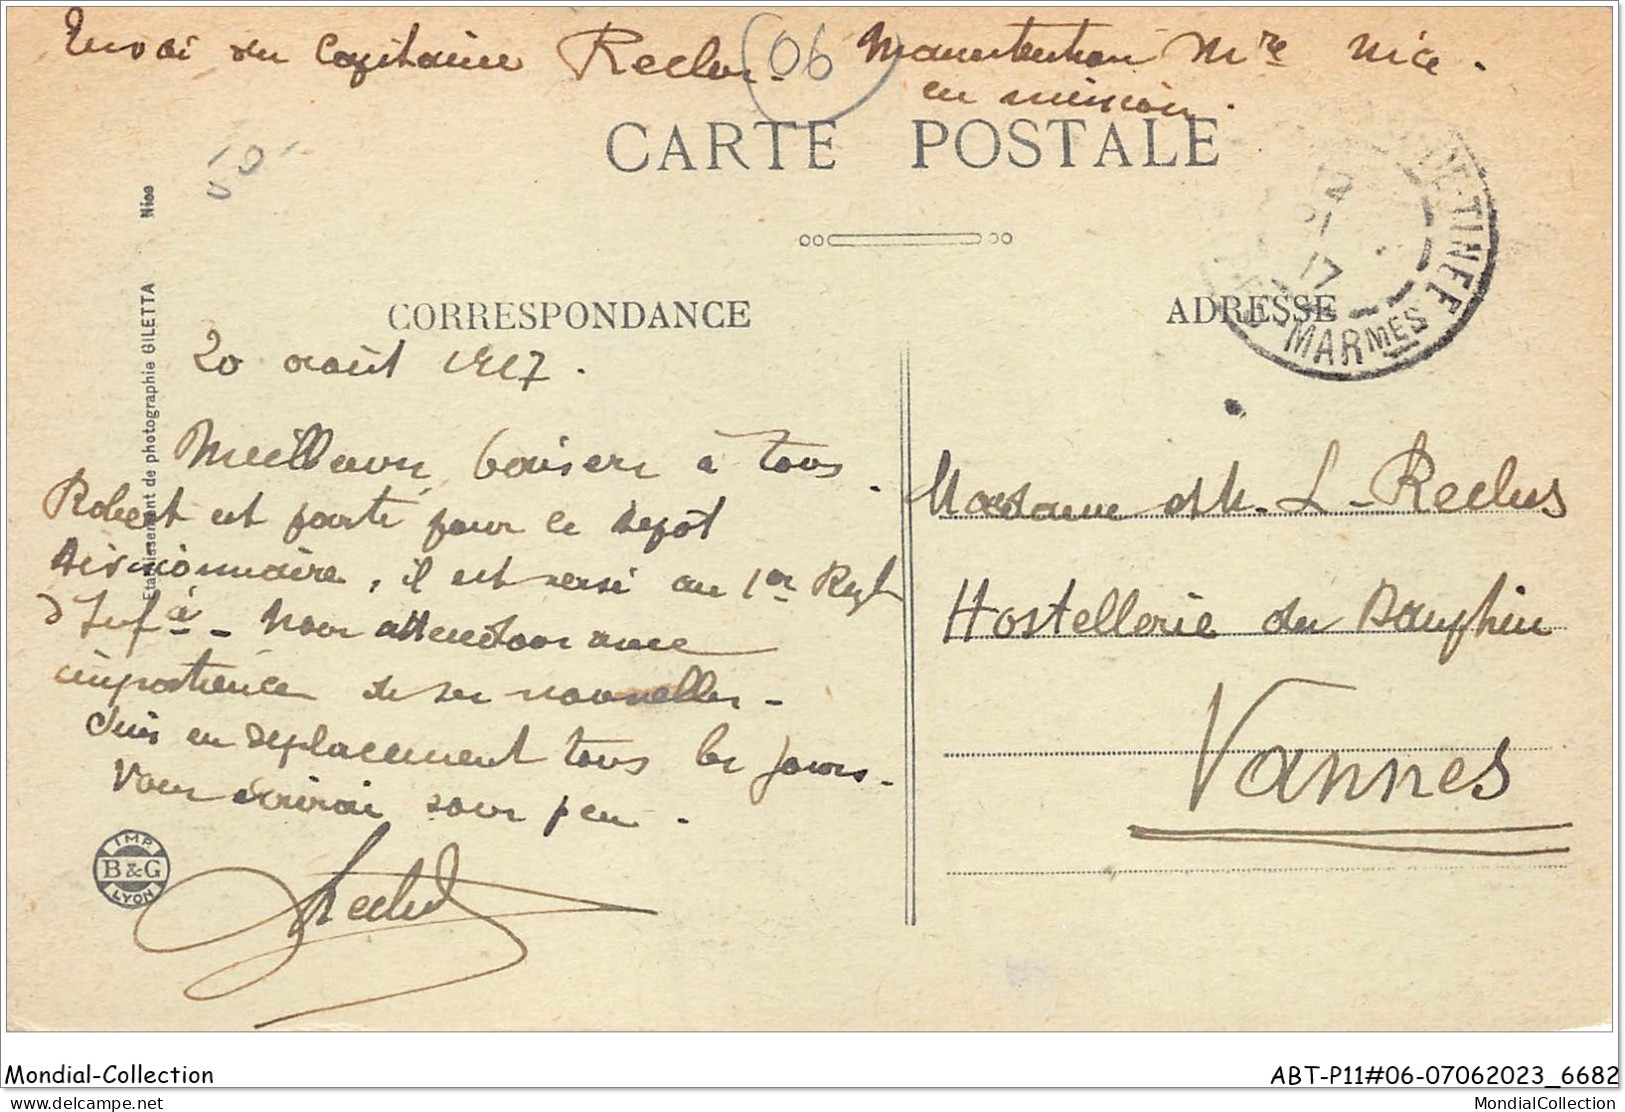 Envoi du Capitaine Reclus Manutention Mre Nice.
en mission.
06
CARTE POSTALE
DE-TINEE
MARMES
17
CORRESPONDANCE
ADRESSE
Etablissement de photographie GILETTA Nice
20 août 1917.
Meilleurs baisers à tous.
Robert est parti pour le dépôt
divisionnaire, il est versé au 1er Regt
d'Infie - Nous attendons avec
impatience de ses nouvelles -
Suis en déplacement tous les jours -
Vous écrirai sous peu.
Reclus
Madame L. Reclus
Hostellerie du Dauphin
Vannes
IMP.
B&G
LYON
Mondial-Collection
ABT-P11#06-07062023_6682
www.delcampe.net
MondialCollection